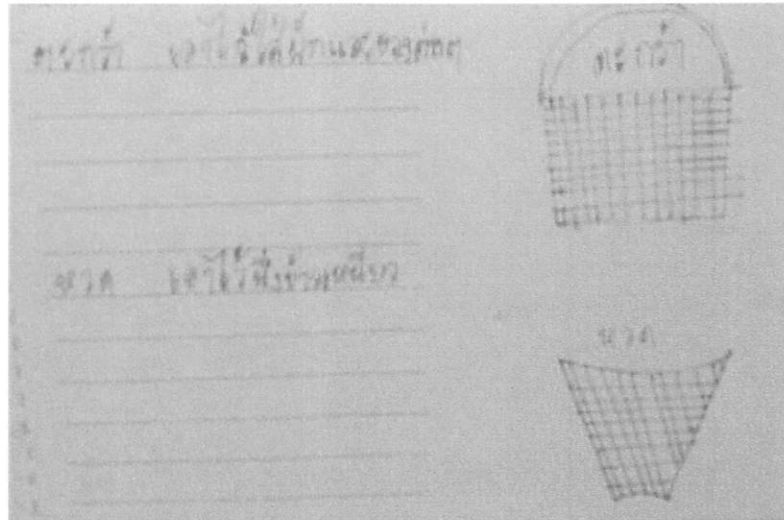 ตะกร้า เอาไว้ใส่ผักและของต่างๆ
ตะกร้า
หวด เอาไว้นึ่งข้าวเหนียว
หวด